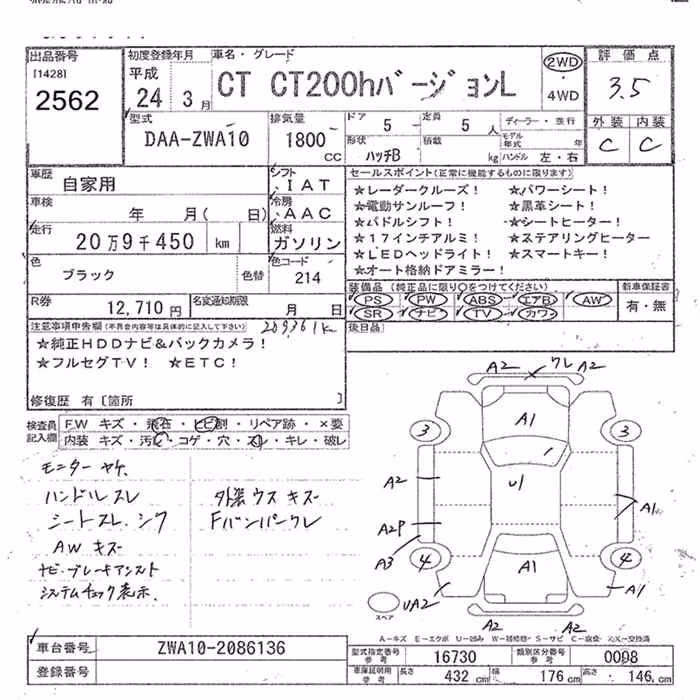 出品番号
[1428]
2562
初度登録年月
平成
24 3月
車名・グレード
CT CT200hバージョンL
2WD
・
4WD
評価点
3.5
外装 内装
C C
型式
DAA-ZWA10
排気量
1800
CC
ドア
5
定員
5人
形状
ハッチB
積載
kg
ディーラー・並行
モデル年式 年
ハンドル 左・右
車歴
自家用
シフト
IAT
車検
年 月( 日)
冷房
AAC
走行
20万9千450 km
燃料
ガソリン
色
ブラック
色替
色コード
214
R券
12,710円
名変通知期限
月 日
セールスポイント(正常に機能するものに限ります)
★レーダークルーズ! ★パワーシート!
★電動サンルーフ! ★黒革シート!
★パドルシフト! ★シートヒーター!
★17インチアルミ! ★ステアリングヒーター
★LEDヘッドライト! ★スマートキー!
★オート格納ドアミラー!
装備品(純正品に限り○をつけてください)
PS PW ABS エアB AW
SR ナビ TV カワ
新車保証書
有・無
後日品
注意事項申告欄(不具合内容等は具体的に記入して下さい)
209361K
★純正HDDナビ&バックカメラ!
★フルセグTV! ★ETC!
修復歴 有〔箇所 〕
検査員記入欄
F.W キズ・飛石・ヒビ割・リペア跡・×要
内装 キズ・汚レ・コゲ・穴・スレ・キレ・破レ
モニターヤケ
ハンドルスレ
シートスレ.シワ
AWキズ
ナビ・ブレーキアシスト
システムチェック表示.
外装ウスキズ
Fバンパーワレ
A2 ワレ A2
A1
3 3
A2
U1
A1
A2P
A3
4 4
A1
A1
UA2
スペア
A2 A2
A-キズ E-エクボ U-凹み W-補修跡 S-サビ C-腐食 X-交換済
車台番号
ZWA10-2086136
登録番号
型式指定番号
参考
16730
類別区分番号
参考
0098
車庫証明用
参考
長さ
432 cm
幅
176 cm
高さ
146 cm